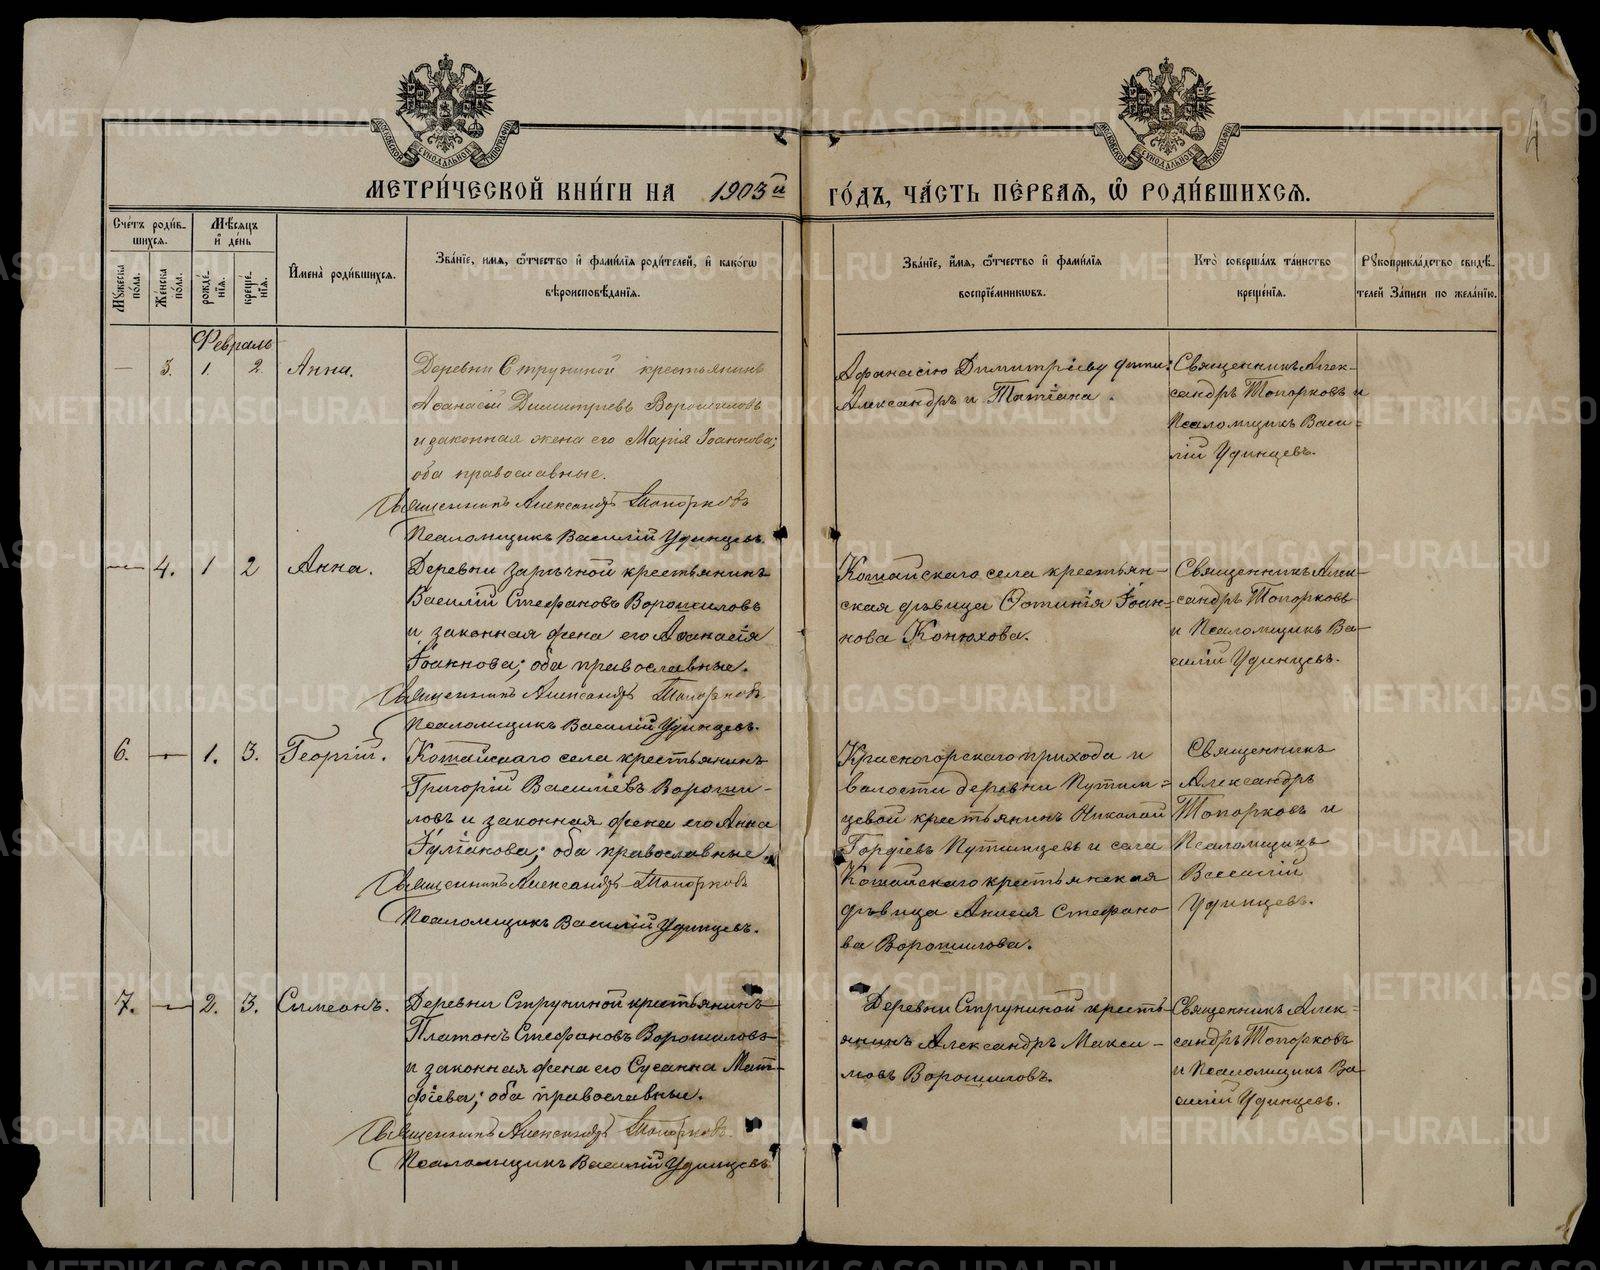 МЕТРИ́ЧЕСКОЙ КНИ́ГИ НА 1903й ГО́ДЪ, ЧА́СТЬ ПЕ́РВАЯ, Ѡ҆ РОДИ́ВШИХСѦ.
Сче́тъ роди́в-
шихсѧ.
Мꙋ́жеска по́ла.
Же́нска по́ла.
Мѣ́сѧцъ
и҆ де́нь
рожде́-нїѧ.
креще́-нїѧ.
И҆мена̀ роди́вшихсѧ.
Зва́нїе, и҆мѧ, ѻ҆́тчество и҆ фами́лїѧ роди́телей, и҆ како́гѡ
вѣроисповѣ́данїѧ.
Зва́нїе, и҆́мѧ, ѻ҆́тчество и҆ фами́лїѧ
воспрїе́мникѡвъ.
Кто̀ соверша́лъ та́инство
креще́нїѧ.
Рꙋкоприкла́дство свидѣ́-
телей За́писи по жела́нїю.
Февраль
— 3. 1. 2. Анна.
Деревни Струниной крестьянинъ
Аѳанасій Димитріевъ Ворошиловъ
и законная жена его Марія Іоаннова;
оба православные.
Священникъ Александръ Топорковъ
Псаломщикъ Василій Удинцевъ.
Аѳанасію Димитріеву дѣти:
Александръ и Татіана.
Священникъ Алек-
сандръ Топорковъ и
Псаломщикъ Васи-
лій Удинцевъ.
— 4. 1 2 Анна.
Деревни Зарѣчной крестьянинъ
Василій Стефановъ Ворошиловъ
и законная жена его Аѳанасія
Іоаннова; оба православные.
Священникъ Александръ Топорковъ
Псаломщикъ Василій Удинцевъ.
Кошайскаго села крестьян-
ская дѣвица Іоан-
нова Конюхова.
Священникъ Алек-
сандръ Топорковъ
и Псаломщикъ Ва-
силій Удинцевъ.
6. — 1. 3. Георгій.
Кошайскаго села крестьянинъ
Григорій Василіевъ Вороши-
ловъ и законная жена его Анна
Іуліанова; оба православные
Священникъ Александръ Топорковъ
Псаломщикъ Василій Удинцевъ.
Красногорскаго прихода и
волости деревни Путим-
цевой крестьянинъ Николай
Гордіевъ Путимцевъ и села
Кошайскаго крестьянская
дѣвица Анисія Стефано
ва Ворошилова.
Священникъ
Александръ
Топорковъ и
Псаломщикъ
Василій
Удинцевъ.
7. — 2. 3. Симеонъ.
Деревни Струниной крестьянинъ
Платонъ Стефановъ Ворошиловъ
и законная жена его Сусанна Мат-
ѳіева; оба православные.
Священникъ Александръ Топорковъ.
Псаломщикъ Василій Удинцевъ
Деревни Струниной кресть-
янинъ Александръ Макси-
мовъ Ворошиловъ.
Священникъ Алек-
сандръ Топорковъ
и Псаломщикъ Ва-
силій Удинцевъ.